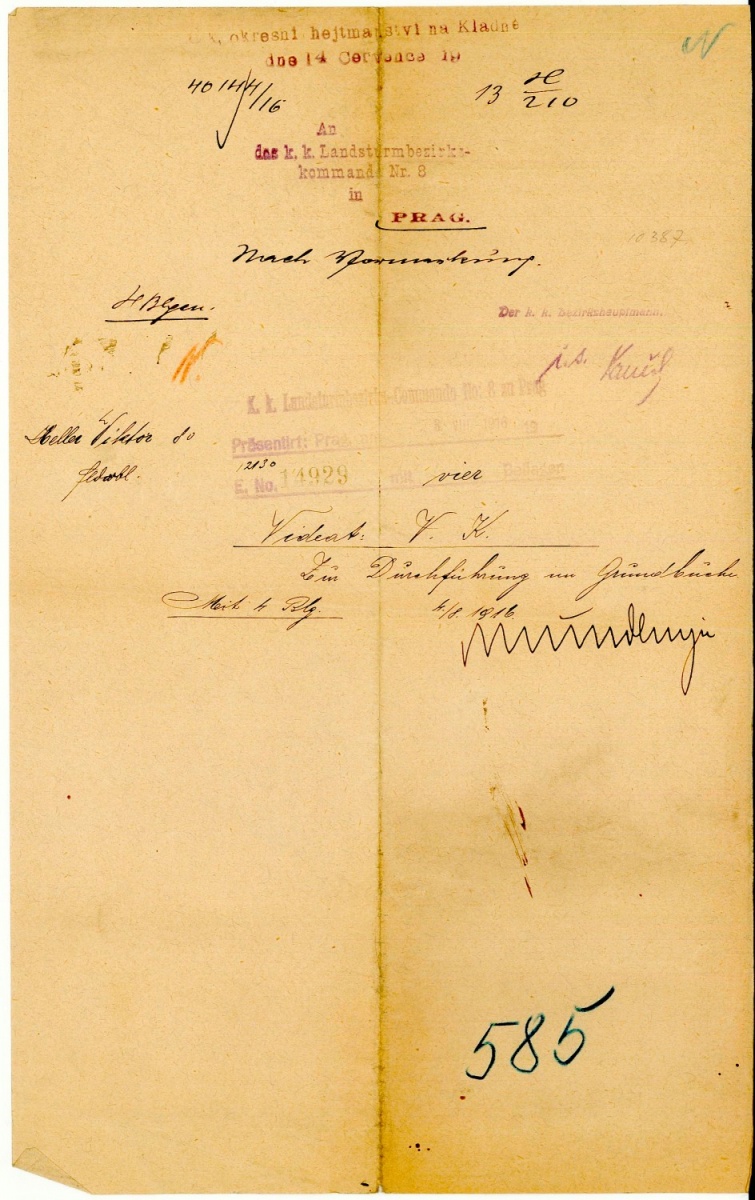 k. okresní hejtmanství na Kladně
dne 14 Července 19
N
40144/16
13 H/210
An
das k. k. Landsturmbezirks-
kommando Nr. 8
in
PRAG.
10387
Nach Vormerkung.
4 Blgen.
Der k. k. Bezirkshauptmann.
K. k. Landsturmbezirks-Commando No: 8 in Prag
Präsentirt: Prag 19
Heller Viktor 80
Feldwbl.
12130
E. No. 14929 mit vier Beilagen
Videat: V. K.
Zur Durchführung im Grundbuche
Mit 4 Blg. 4/8. 1916.
585